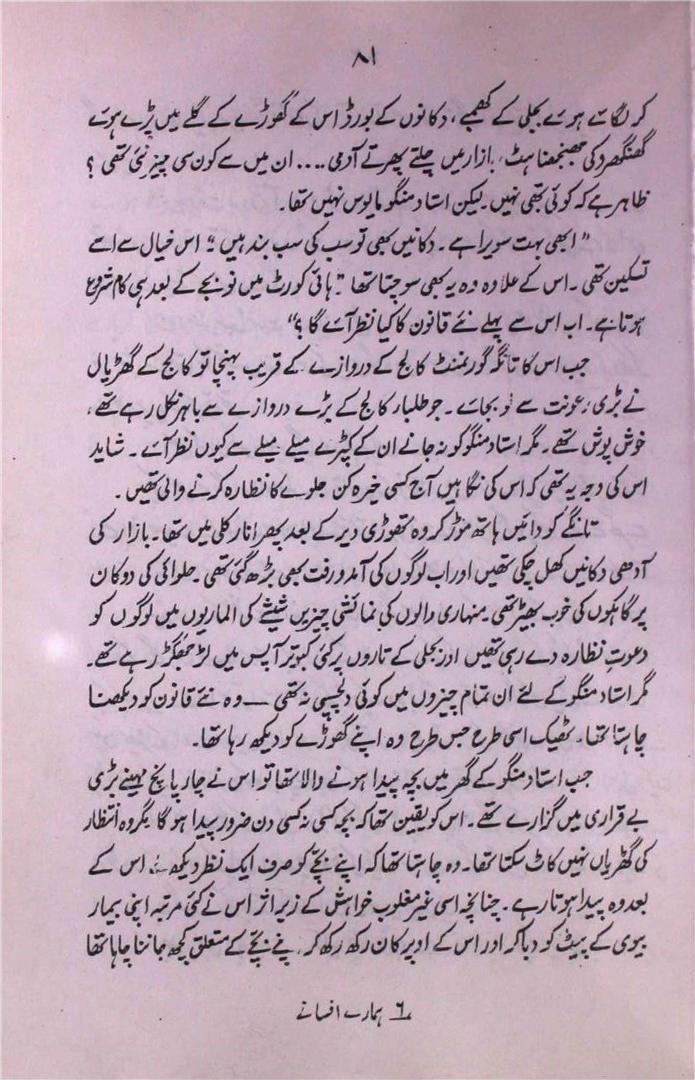 ۸۱
کر لگائے ہوئے بجلی کے کھمبے، دکانوں کے بورڈ اس کے گھوڑے کے گلے میں پڑے ہوئے
گھنگھرو کی جھنجھناہٹ، بازار میں چلتے پھرتے آدمی .... ان میں سے کون سی چیز نئی تھی ؟
ظاہر ہے کہ کوئی بھی نہیں۔ لیکن استاد منگو مایوس نہیں تھا۔
"ابھی بہت سویرا ہے۔ دکانیں بھی تو سب کی سب بند ہیں"؛ اس خیال سے اسے
تسکین تھی۔ اس کے علاوہ وہ یہ بھی سوچتا تھا "ہائی کورٹ میں نو بجے کے بعد ہی کام شروع
ہوتا ہے۔ اب اس سے پہلے نئے قانون کا کیا نظر آئے گا ؟"
جب اس کا تانگہ گورنمنٹ کالج کے دروازے کے قریب پہنچا تو کالج کے گھڑیال
نے بڑی رعونت سے نو بجائے۔ جو طلبار کالج کے بڑے دروازے سے باہر نکل رہے تھے،
خوش پوش تھے۔ مگر استاد منگو کو نہ جانے ان کے کپڑے میلے میلے سے کیوں نظر آئے۔ شاید
اس کی وجہ یہ تھی کہ اس کی نگاہیں آج کسی خیرہ کن جلوے کا نظارہ کرنے والی تھیں۔
تانگے کو دائیں ہاتھ موڑ کر وہ تھوڑی دیر کے بعد پھر انارکلی میں تھا۔ بازار کی
آدھی دکانیں کھل چکی تھیں اور اب لوگوں کی آمد و رفت بھی بڑھ گئی تھی۔ حلوائی کی دوکان
پر گاہکوں کی خوب بھیڑ تھی۔ منہاری والوں کی نمائشی چیزیں شیشے کی الماریوں میں لوگوں کو
دعوتِ نظارہ دے رہی تھیں اور بجلی کے تاروں پر کئی کبوتر آپس میں لڑ جھگڑ رہے تھے۔
مگر استاد منگو کے لئے ان تمام چیزوں میں کوئی دلچسپی نہ تھی — وہ نئے قانون کو دیکھنا
چاہتا تھا۔ ٹھیک اسی طرح جس طرح وہ اپنے گھوڑے کو دیکھ رہا تھا۔
جب استاد منگو کے گھر میں بچہ پیدا ہونے والا تھا تو اس نے چار پانچ مہینے بڑی
بے قراری میں گزارے تھے۔ اس کو یقین تھا کہ بچہ کسی نہ کسی دن ضرور پیدا ہو گا مگر وہ انتظار
کی گھڑیاں نہیں کاٹ سکتا تھا۔ وہ چاہتا تھا کہ اپنے بچّے کو صرف ایک نظر دیکھ اس کے
بعد وہ پیدا ہوتا رہے۔ چنانچہ اسی غیر مغلوب خواہش کے زیر اثر اس نے کئی مرتبہ اپنی بیمار
بیوی کے پیٹ کو دبا کر اور اس کے اوپر کان رکھ رکھ کر پنے بچّے کے متعلق کچھ جاننا چاہا تھا
۶ ہمارے افسانے